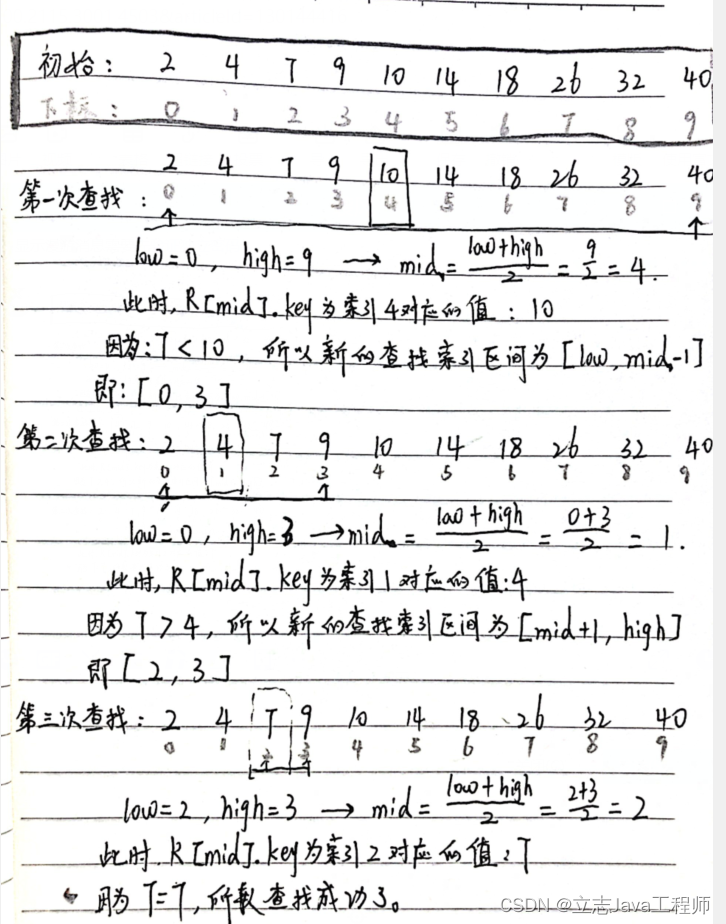 初始： 2 4 7 9 10 14 18 26 32 40
下标： 0 1 2 3 4 5 6 7 8 9
2 4 7 9 10 14 18 26 32 40
第一次查找： 0 1 2 3 4 5 6 7 8 9
low=0, high=9 → mid=(low+high)/2=9/2=4.
此时, R[mid].key为索引4对应的值：10
因为：7<10, 所以新的查找索引区间为[low, mid-1]
即：[0, 3]
第二次查找：2 4 7 9 10 14 18 26 32 40
0 1 2 3 4 5 6 7 8 9
low=0, high=3 → mid=(low+high)/2=(0+3)/2=1.
此时, R[mid].key为索引1对应的值：4
因为7>4, 所以新的查找索引区间为[mid+1, high]
即[2, 3]
第三次查找：2 4 7 9 10 14 18 26 32 40
0 1 2 3 4 5 6 7 8 9
low=2, high=3 → mid=(low+high)/2=(2+3)/2=2
此时, R[mid].key为索引2对应的值：7
因为7=7, 所以查找成功了。
CSDN @立志Java工程师